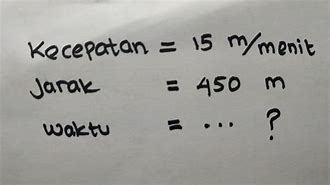 Kecepatan = 15 m/menit
Jarak = 450 m
waktu = ... ?